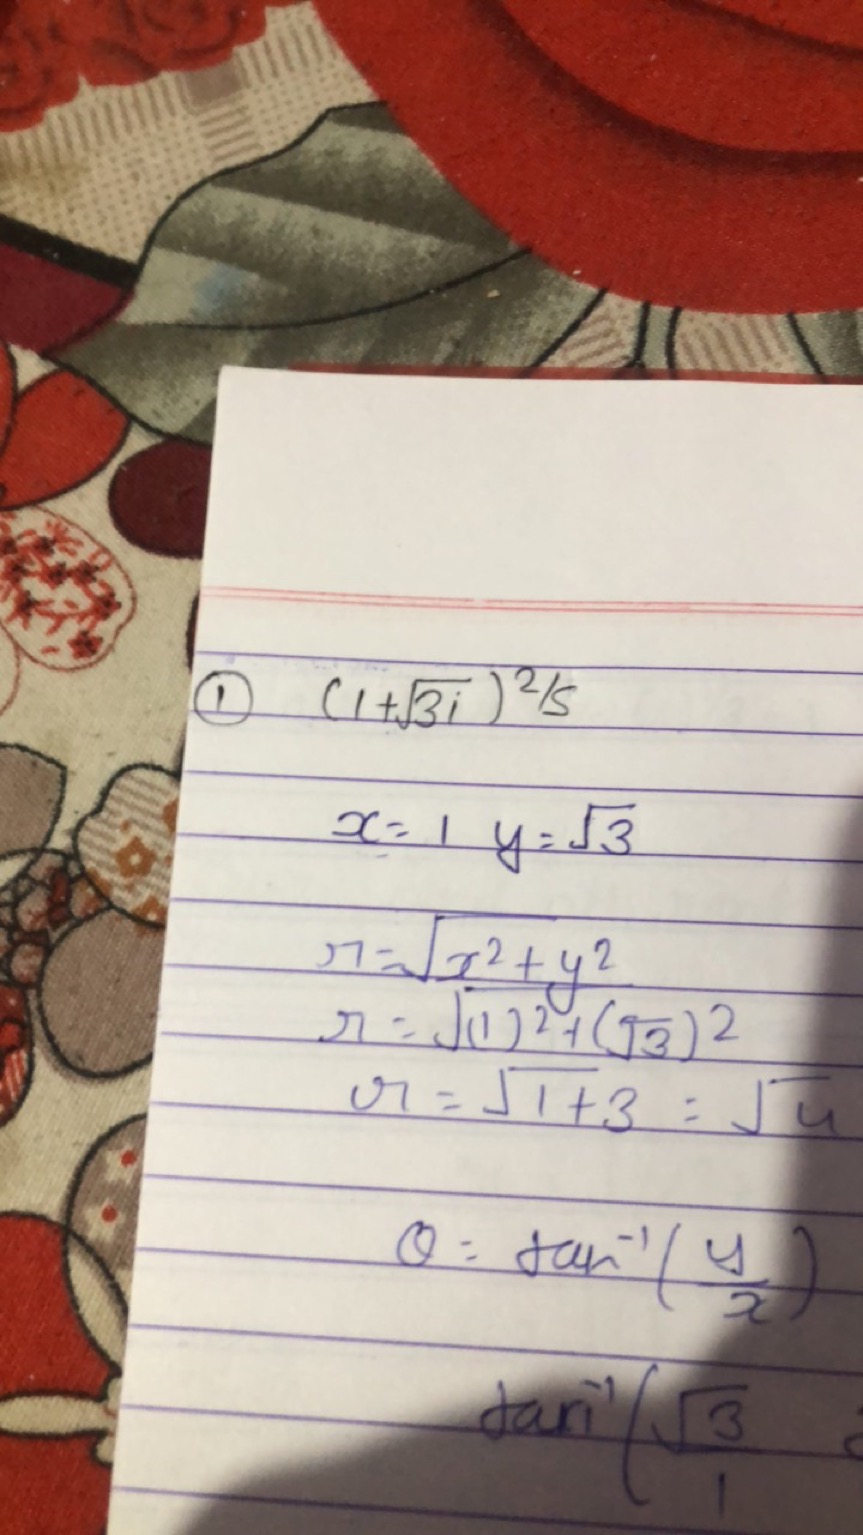 ① (1+√3i)^2/5
x= 1 y=√3
r=√x²+y²
r=√(1)²+(√3)²
r=√1+3 = √4
θ = tan⁻¹(y/x)
tan⁻¹(√3/1